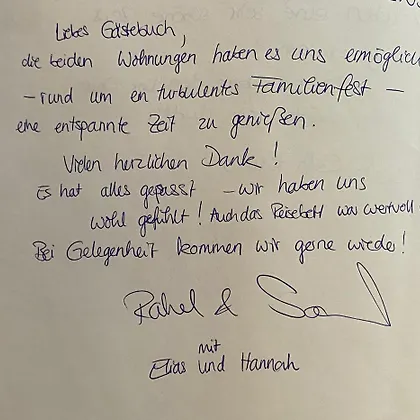 Liebes Gästebuch,
die beiden Wohnungen haben es uns ermöglich
– rund um en turbulentes Familienfest –
eine entspannte Zeit zu genießen.
Vielen herzlichen Dank!
Es hat alles gepasst – wir haben uns
wohl gefühlt! Auch das Reisebett war wertvoll
Bei Gelegenheit kommen wir gerne wieder!
Rahel &
mit
Elias und Hannah